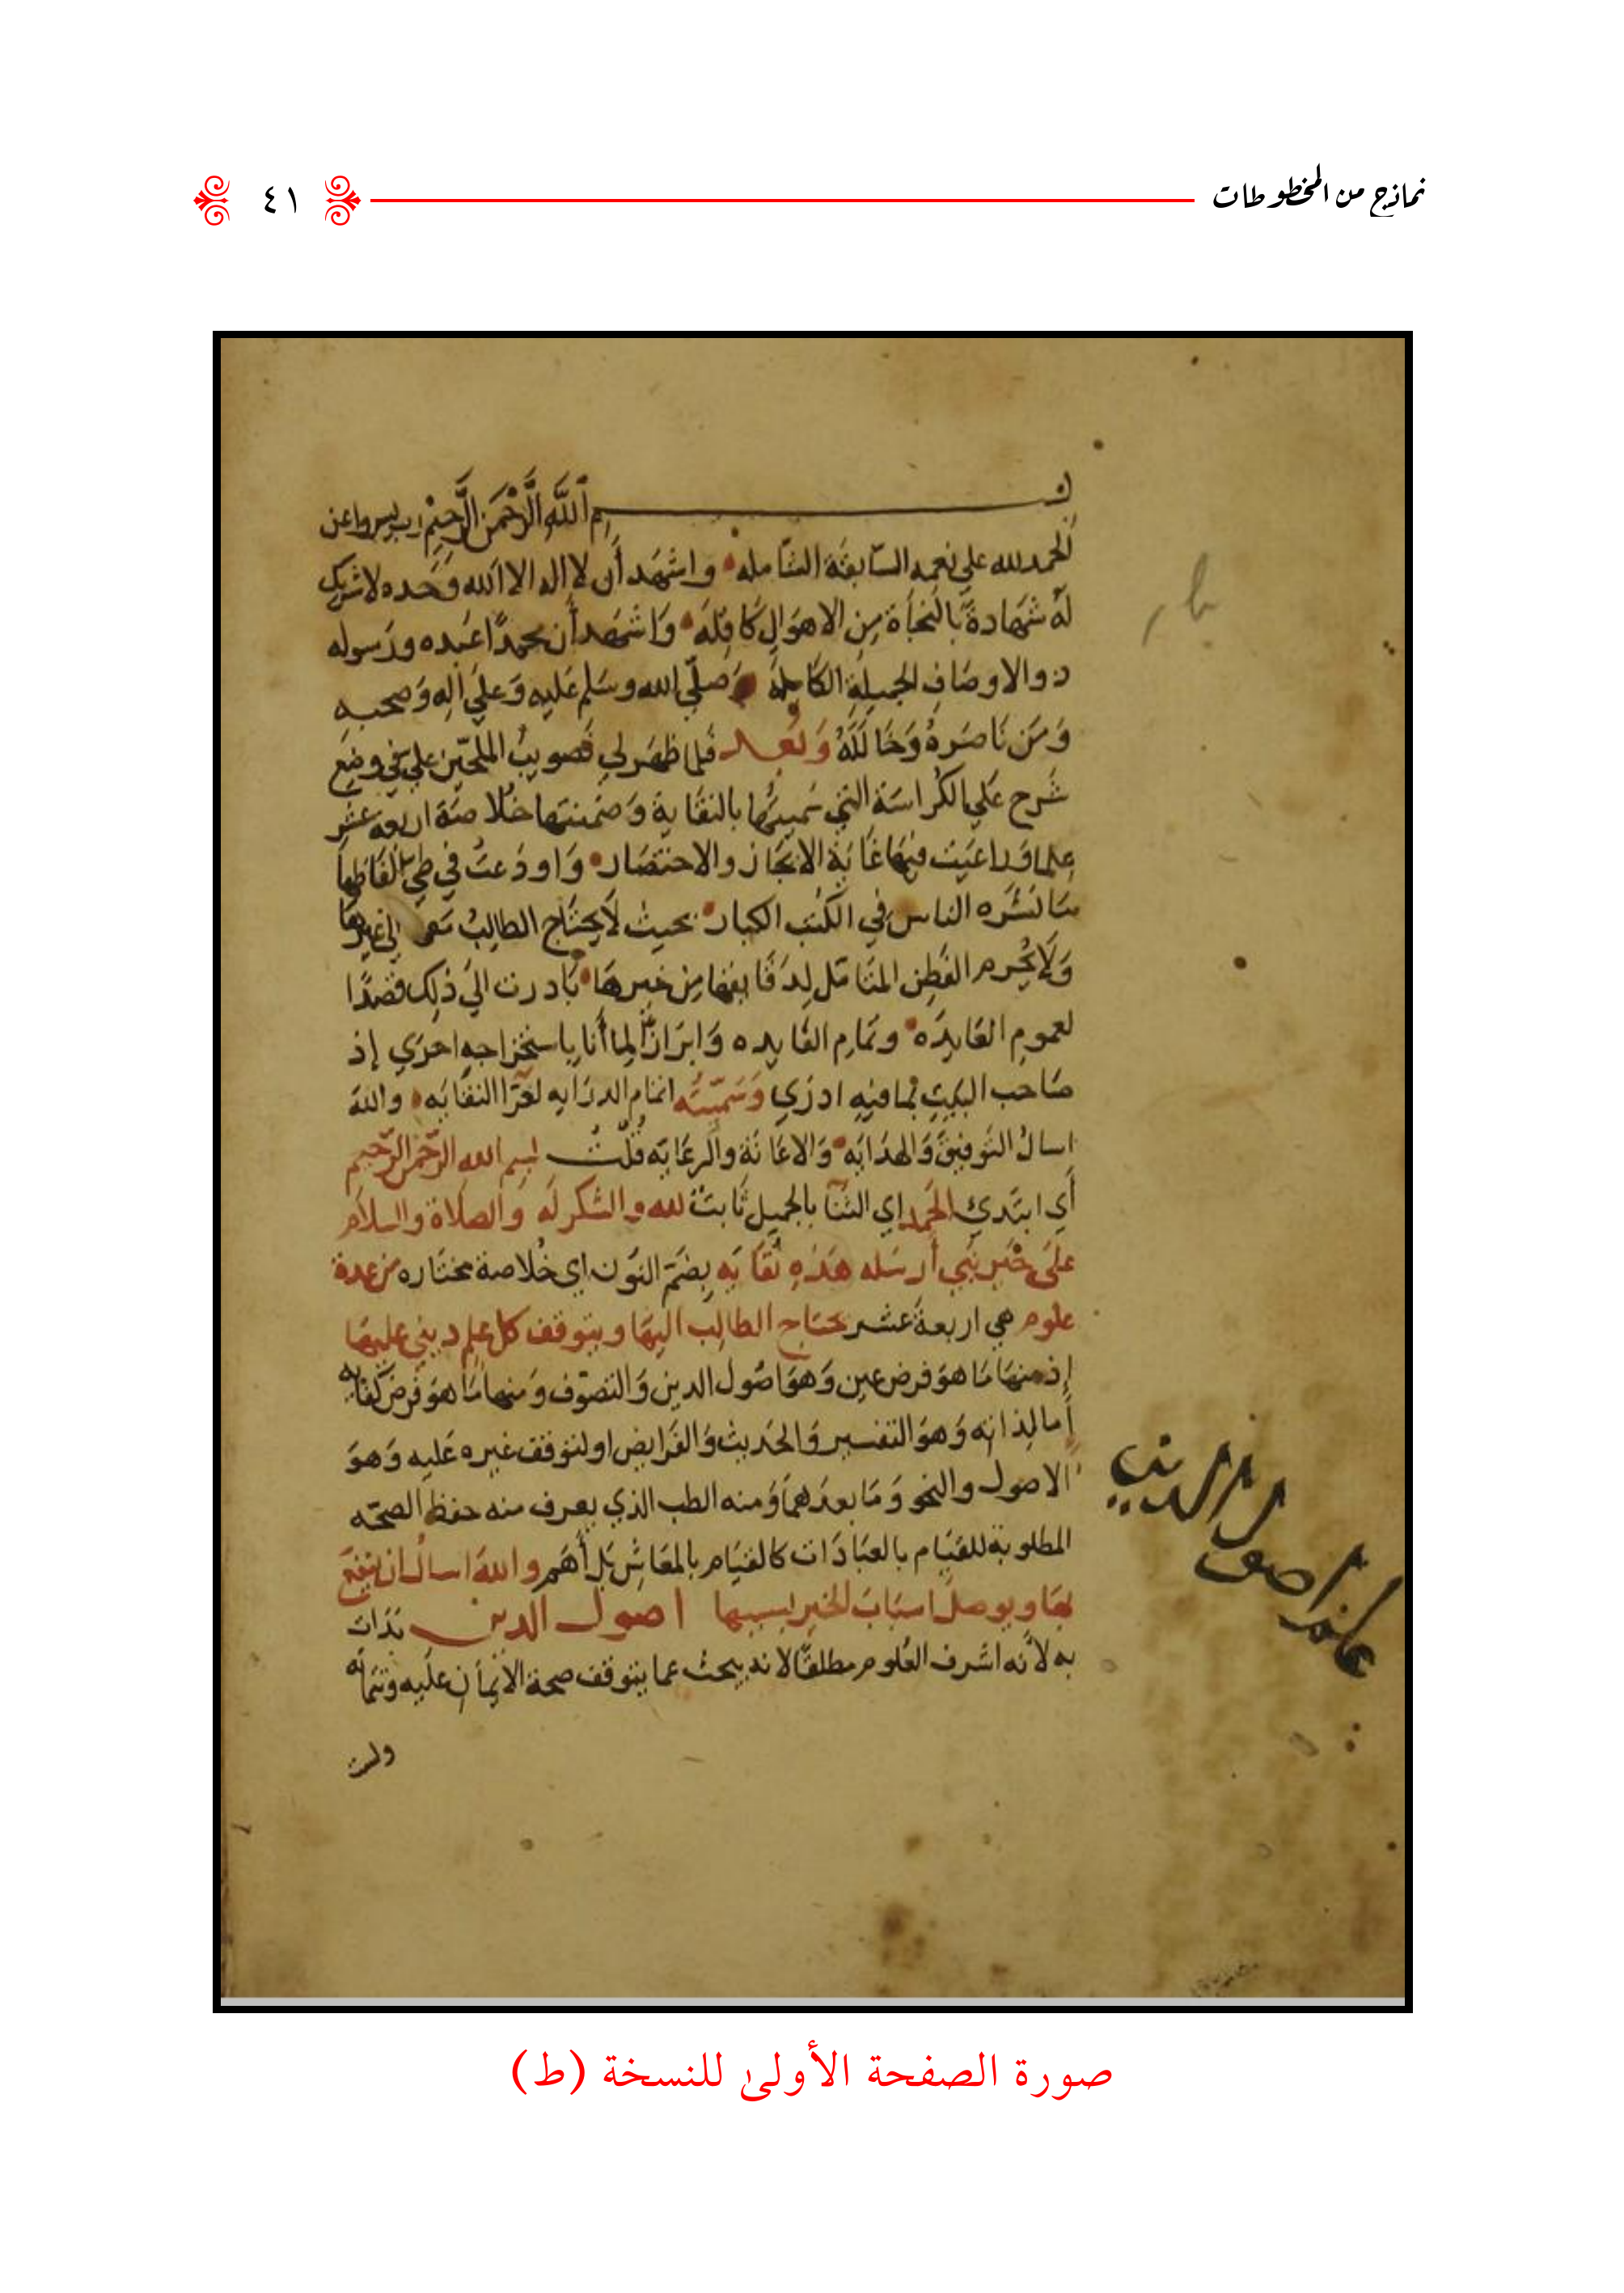 نماذج من المخطوطات
٤١
بسم الله الرَّحْمَنِ الرَّحِيْمِ رب يسر واعن
الحمد لله علي نعمه السابغة الشاملة واشهد أن لا اله الا الله وحده لا شريك
له شهادة بالنجاة من الاهوال كافلة واشهد أن محمدًا عبده ورسوله
ذو الاوصاف الجميلة الكاملة وصلي الله وسلم عليه وعلي اله وصحبه
ومن ناصره وخالله وبعد فلما ظهر لي تصويب الملحين علي في وضع
شرح علي الكراسة التي سميتها بالنقاية وضمنتها خلاصة اربعة عشر
علما وراعيت فيها غاية الايجاز والاختصار واودعت في طي الفاظها
ما نشره الناس في الكتب الكبار بحيث لا يحتاج الطالب معها الي غيرها
ولا يحرم الفطن المتامل لدقايقها من خيرها بادرت الي ذلك قصدًا
لعموم العايدة وتمام الفايده وابرازًا لما أنا باستخراجه احري إذ
صاحب البيت بما فيه ادري وسميته اتمام الدرايه لقرا النقايه والله
اسال التوفيق والهدايه والاعانة والرعايه قلت بسم الله الرحمن الرحيم
أي ابتدي الحمد اي الثنا بالجميل ثابت لله والشكر له والصلاة والسلام
على خير نبي أرسله هذه نقايه بضم النون اي خلاصة مختاره من عدة
علوم هي اربعة عشر يحتاج الطالب اليها ويتوقف كل علم ديني عليها
إذ منها ما هو فرض عين وهو اصول الدين والتصوف ومنها ما هو فرض كفايه
أما لذاته وهو التفسير والحديث والفرايض او لتوقف غيره عليه وهو
الاصول والنحو وما بعدهما ومنه الطب الذي يعرف منه حفظ الصحه
المطلوبة للقيام بالعبادات كالقيام بالمعاش بل أهم والله اسال ان ينفع
بها ويوصل اسباب الخير بسببها اصول الدين بدات
به لانه اشرف العلوم مطلقًا لانه يبحث عما يتوقف صحة الايمان عليه وتتماته
علم اصول الدين
صورة الصفحة الأولىٰ للنسخة (ط)